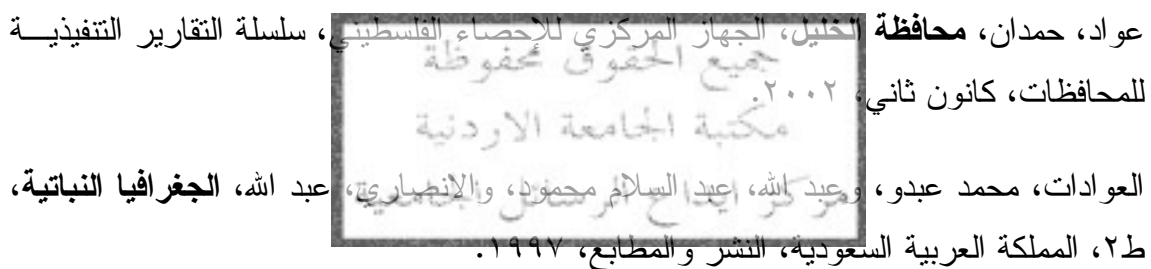 عواد، حمدان، محافظة الخليل، الجهاز المركزي للإحصاء الفلسطيني، سلسلة التقارير التنفيذية
للمحافظات، كانون ثاني، ٢٠٠٢.
العوادات، محمد عبدو، وعبد الله، عبد السلام محمود، والانصاري، عبد الله، الجغرافيا النباتية،
ط٢، المملكة العربية السعودية، النشر والمطابع، ١٩٩٧.
جميع الحقوق محفوظة
مكتبة الجامعة الاردنية
مركز ايداع الرسائل الجامعية